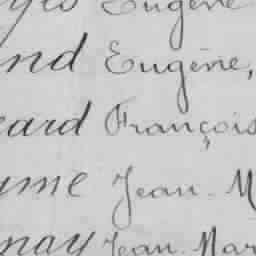 Eugène
nd Eugène,
card François
yme Jean-M
nay Jean-Mar